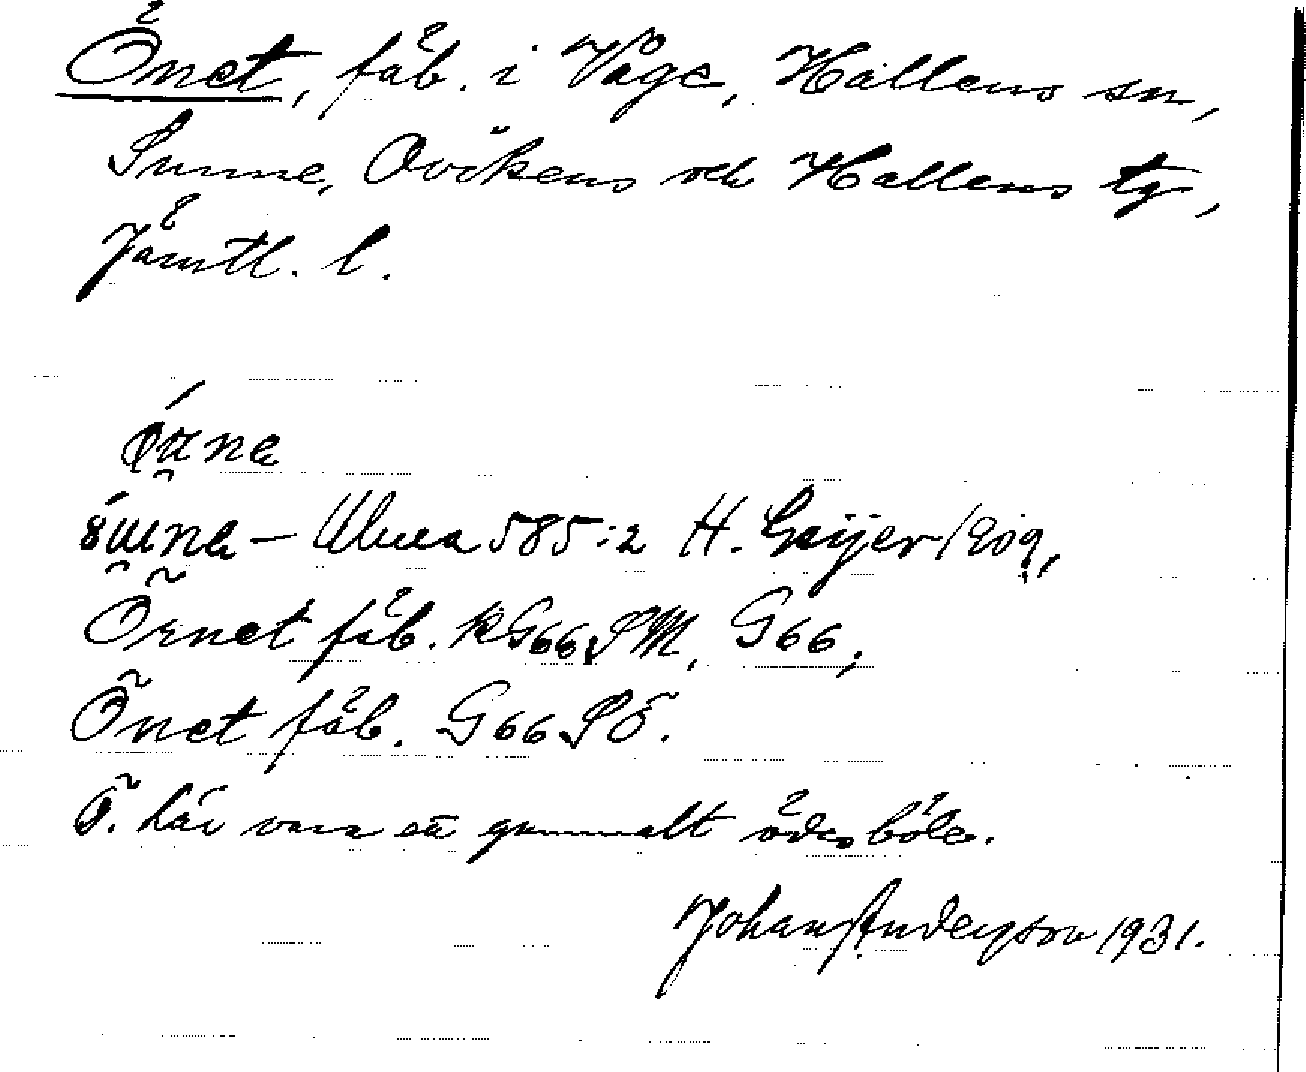 Önet, fäb. i Våge, Hallens sn,
Sunne, Ovikens och Hallens tg,
Jämtl. l.
585:2 H. Geijer 1909,
Örnet fäb. kG66SM, G66,
Önet fäb. G66SÖ.
Ö. lär vara ett gammalt ödesböle.
Johan Anderson 1931.